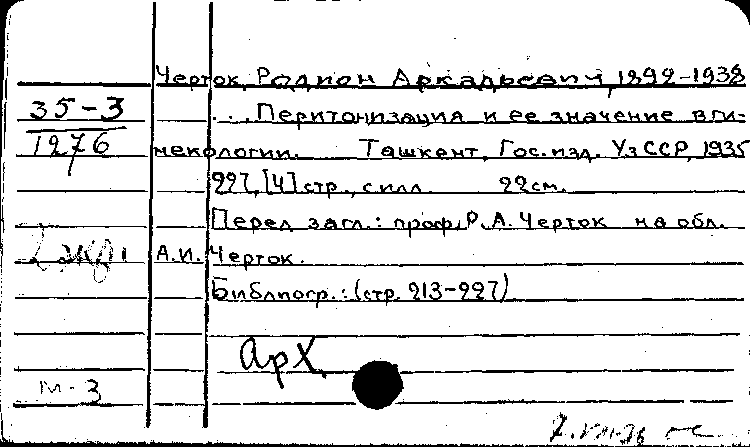 Черток, Родион Аркадьевич, 1892-1938
35-3
1276
...Перитонизация и ее значение в ги-
некологии. Ташкент, Гос. изд. УзССР, 1935
227, [4] стр., с илл. 22см.
Перед загл.: проф. Р.А. Черток на обл.
А.И. Черток.
Библиогр.: (стр. 213-227)
2 экз
Арх
м-3